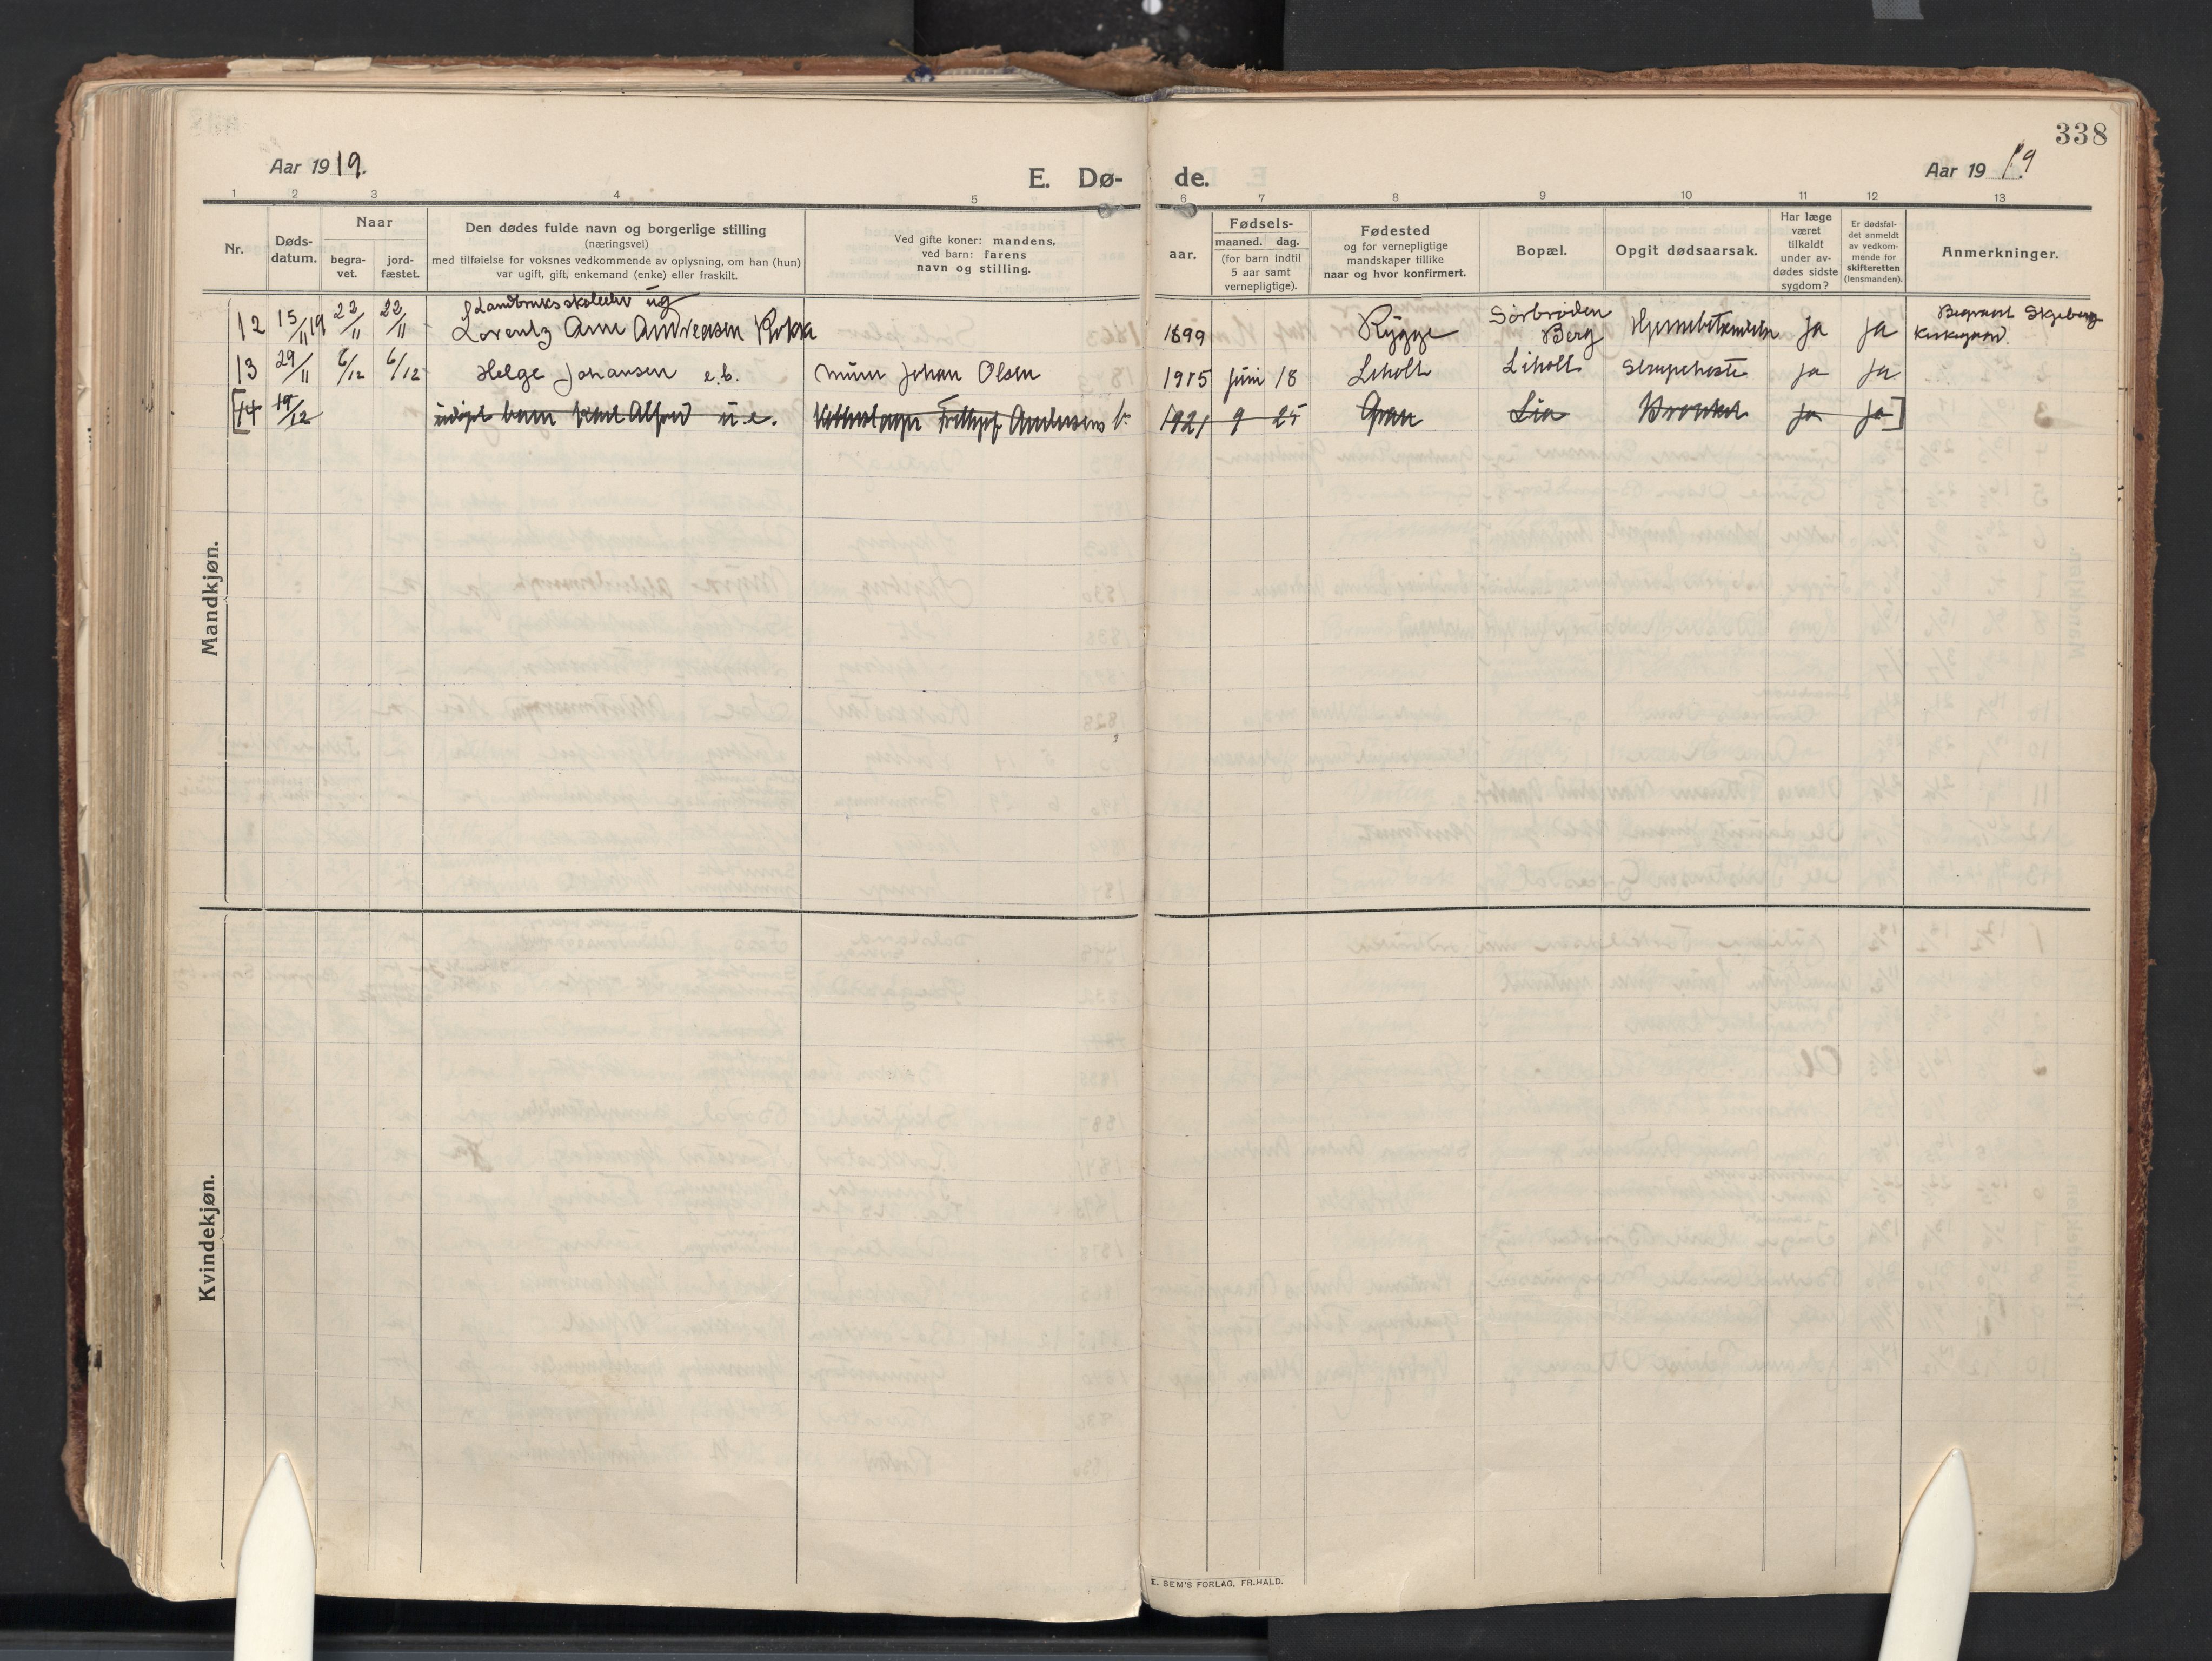 338
Aar 1919.
E. Dø-
de.
Aar 1919
1 2 3 4 5 6 7 8 9 10 11 12 13
Nr.
Døds-
datum.
Naar
begra-
vet.
jord-
fæstet.
Den dødes fulde navn og borgerlige stilling
(næringsvei)
med tilføielse for voksnes vedkommende av oplysning, om han (hun)
var ugift, gift, enkemand (enke) eller fraskilt.
Ved gifte koner: mandens,
ved barn: farens
navn og stilling.
Fødsels-
aar.
maaned. dag.
(for barn indtil
5 aar samt
vernepligtige).
Fødested
og for vernepligtige
mandskaper tillike
naar og hvor konfirmert.
Bopæl.
Opgit dødsaarsak.
Har læge
været
tilkaldt
under av-
dødes sidste
sygdom?
Er dødsfal-
det anmeldt
av vedkom-
mende for
skifteretten
(lensmanden).
Anmerkninger.
Mandkjøn.
Landbruksskoleelev ug
12 15/11 19 22/11 22/11 Lorentz Arne Andreasen Rokke 1899 Rygge Sørbrøden Berg ja ja Begravet Skjeberg
Kirkegaard.
13 29/11 6/12 6/12 Helge Johansen e.b. murer Johan Olsen 1915 juni 18 Liholt Liholt Strupehoste ja ja
[14 19/12 barn Karl Alfred u.e. Andersens 1921 9 25 Gran Lia ja ja]
Kvindekjøn.
E. SEM'S FORLAG, FR.HALD.